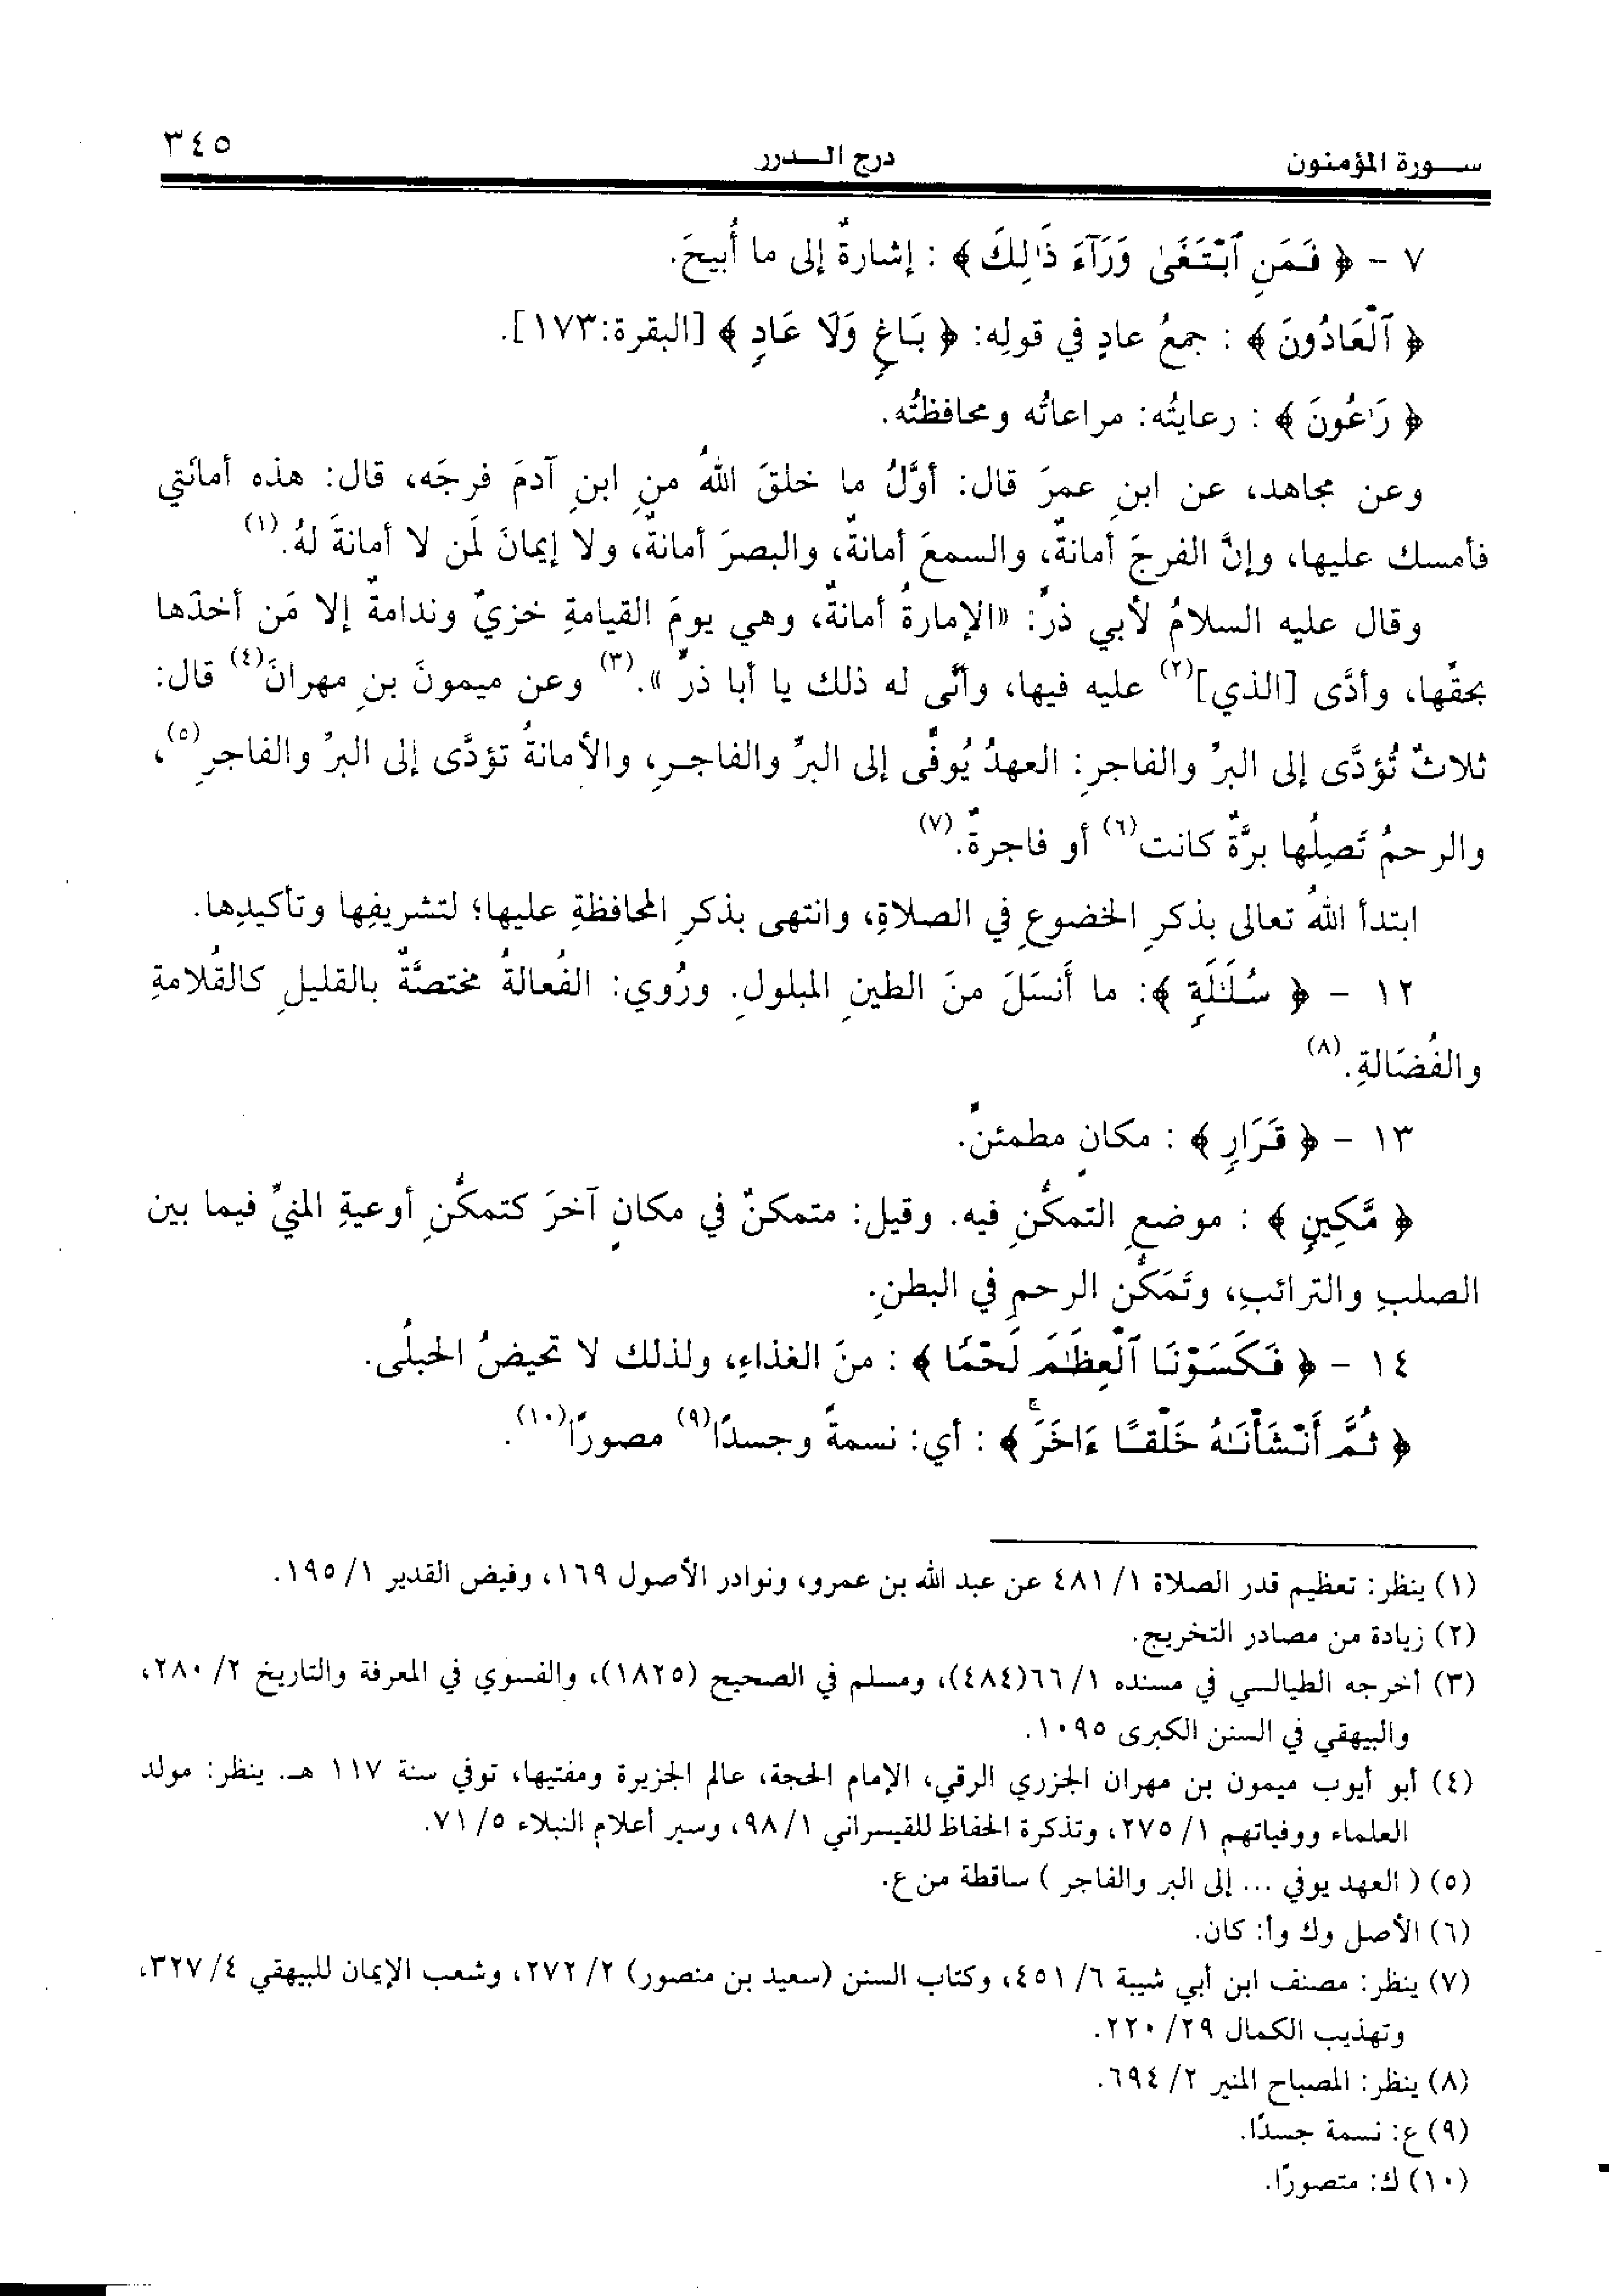 سـورة المؤمنون درج الـدرر ٣٤٥
٧ - ﴿ فَمَنِ ٱبْتَغَىٰ وَرَآءَ ذَٰلِكَ ﴾ : إشارةٌ إلى ما أُبيحَ.
﴿ ٱلْعَادُونَ ﴾ : جمعُ عادٍ في قولِه: ﴿ بَاغٍ وَلَا عَادٍ ﴾ [البقرة:١٧٣].
﴿ رَٰعُونَ ﴾ : رعايتُه: مراعاتُه ومحافظتُه.
وعن مجاهد، عن ابنِ عمرَ قال: أوَّلُ ما خلقَ اللهُ منِ ابنِ آدمَ فرجَه، قال: هذه أمانَتي
فأمسك عليها، وإنَّ الفرجَ أمانةٌ، والسمعَ أمانةٌ، والبصرَ أمانةٌ، ولا إيمانَ لَمن لا أمانةَ لهُ.(١)
وقال عليه السلامُ لأبي ذرٍّ: «الإمارةُ أمانةٌ، وهي يومَ القيامةِ خزيٌ وندامةٌ إلا مَن أخذَها
بحقِّها، وأدَّى [الذي](٢) عليه فيها، وأنَّى له ذلك يا أبا ذرٍّ ».(٣) وعن ميمونَ بنِ مهرانَ(٤) قال:
ثلاثٌ تُؤدَّى إلى البرِّ والفاجرِ: العهدُ يُوفَّى إلى البرِّ والفاجـرِ، والأمانةُ تؤدَّى إلى البرِّ والفاجرِ(٥)،
والرحمُ تَصِلُها برَّةٌ كانت(٦) أو فاجرةٌ.(٧)
ابتدأ اللهُ تعالى بذكرِ الخضوعِ في الصلاةِ، وانتهى بذكرِ المحافظةِ عليها؛ لتشريفِها وتأكيدِها.
١٢ - ﴿ سُلَٰلَةٍ ﴾: ما أَنسَلَ منَ الطينِ المبلولِ. ورُوي: الفُعالةُ مختصَّةٌ بالقليلِ كالقُلامةِ
والفُضَالةِ.(٨)
١٣ - ﴿ قَرَارٍ ﴾ : مكانٍ مطمئنٍّ.
﴿ مَّكِينٍ ﴾ : موضعِ التمكُّنِ فيه. وقيل: متمكنٌ في مكانٍ آخرَ كتمكُّنِ أوعيةِ المنيِّ فيما بين
الصلبِ والترائبِ، وتَمَكُّن الرحمِ في البطنِ.
١٤ - ﴿ فَكَسَوْنَا ٱلْعِظَٰمَ لَحْمًا ﴾ : منَ الغذاءِ، ولذلك لا تحيضُ الحبلُى.
﴿ ثُمَّ أَنْشَأْنَٰهُ خَلْقًا ءَاخَرَ ۚ ﴾ : أي: نسمةً وجسدًا(٩) مصورًا(١٠).
(١) ينظر: تعظيم قدر الصلاة ١/ ٤٨١ عن عبد الله بن عمرو، ونوادر الأصول ١٦٩، وفيض القدير ١/ ١٩٥.
(٢) زيادة من مصادر التخريج.
(٣) أخرجه الطيالسي في مسنده ١/ ٦٦(٤٨٤)، ومسلم في الصحيح (١٨٢٥)، والفسوي في المعرفة والتاريخ ٢/ ٢٨٠،
والبيهقي في السنن الكبرى ١٠٩٥.
(٤) أبو أيوب ميمون بن مهران الجزري الرقي، الإمام الحجة، عالم الجزيرة ومفتيها، توفي سنة ١١٧ هـ. ينظر: مولد
العلماء ووفياتهم ١/ ٢٧٥، وتذكرة الحفاظ للقيسراني ١/ ٩٨، وسير أعلام النبلاء ٥/ ٧١.
(٥) ( العهد يوفي ... إلى البر والفاجر ) ساقطة من ع.
(٦) الأصل وك وأ: كان.
(٧) ينظر: مصنف ابن أبي شيبة ٦/ ٤٥١، وكتاب السنن (سعيد بن منصور) ٢/ ٢٧٢، وشعب الإيمان للبيهقي ٤/ ٣٢٧،
وتهذيب الكمال ٢٩/ ٢٢٠.
(٨) ينظر: المصباح المنير ٢/ ٦٩٤.
(٩) ع: نسمة جسدًا.
(١٠) ك: متصورًا.